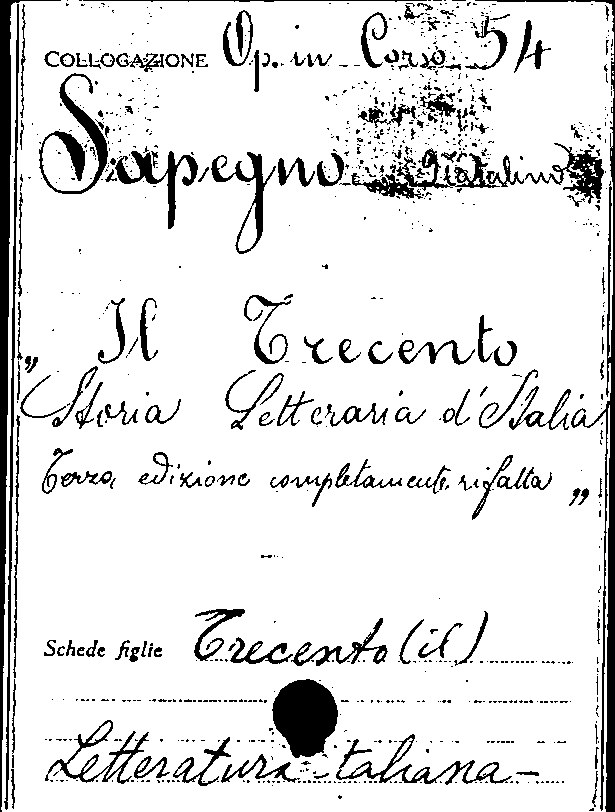 COLLOCAZIONE Op. in Corso 54
Sapegno Natalino
„ Il Trecento
Storia Letteraria d'Italia
Terza edizione completamente rifatta „
Schede figlie Trecento (il)
Letteratura italiana -